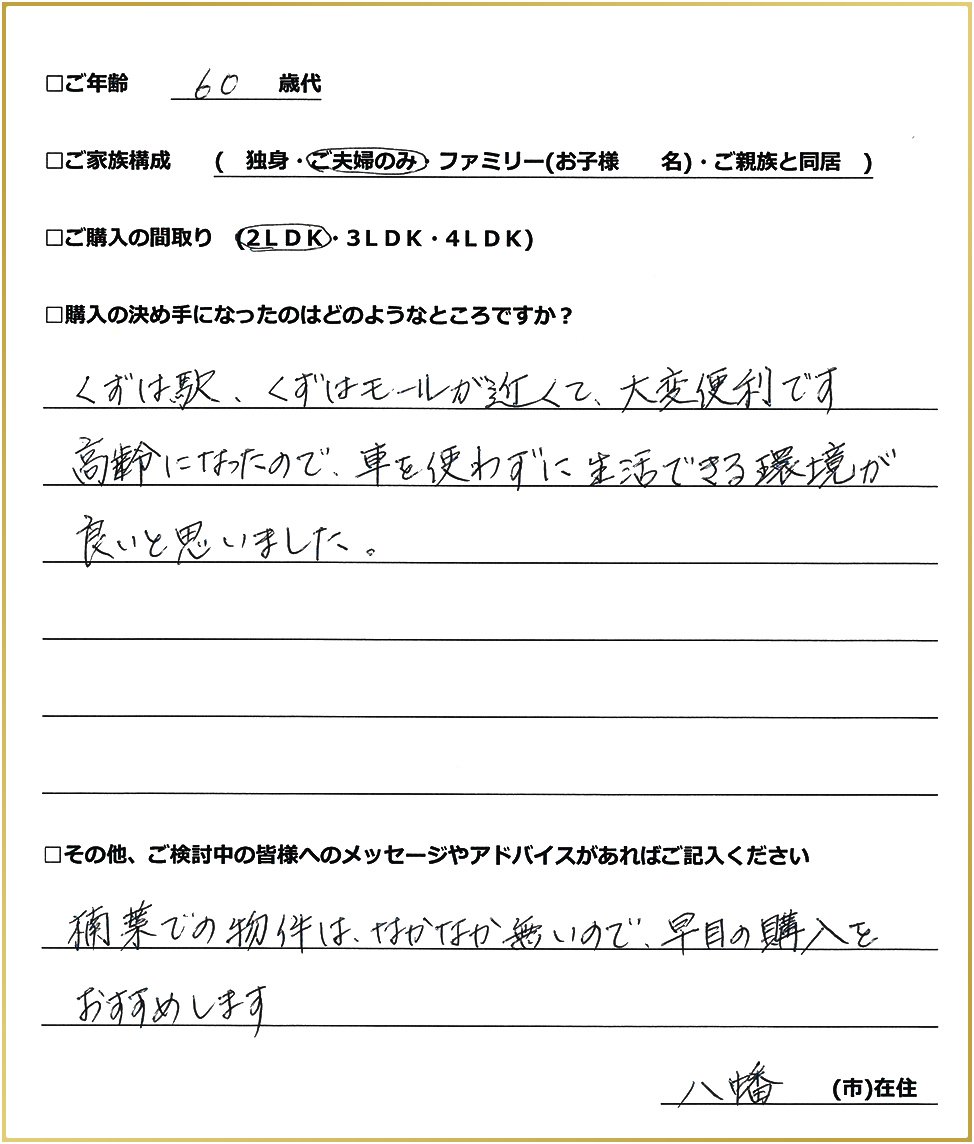 □ご年齢 60 歳代
□ご家族構成 ( 独身・ご夫婦のみ・ファミリー(お子様 名)・ご親族と同居 )
□ご購入の間取り (2LDK・3LDK・4LDK)
□購入の決め手になったのはどのようなところですか？
くずは駅、くずはモールが近くて、大変便利です
高齢になったので、車を使わずに生活できる環境が
良いと思いました。
□その他、ご検討中の皆様へのメッセージやアドバイスがあればご記入ください
楠葉での物件は、なかなか無いので、早目の購入を
おすすめします
八幡 (市)在住